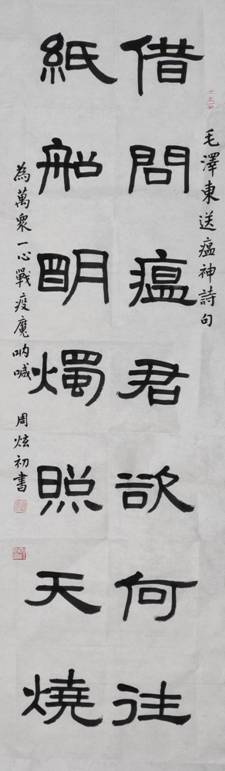 毛澤東送瘟神詩句
借問瘟君欲何往
紙船明燭照天燒
為萬衆一心戰疫魔吶喊 周炫初書